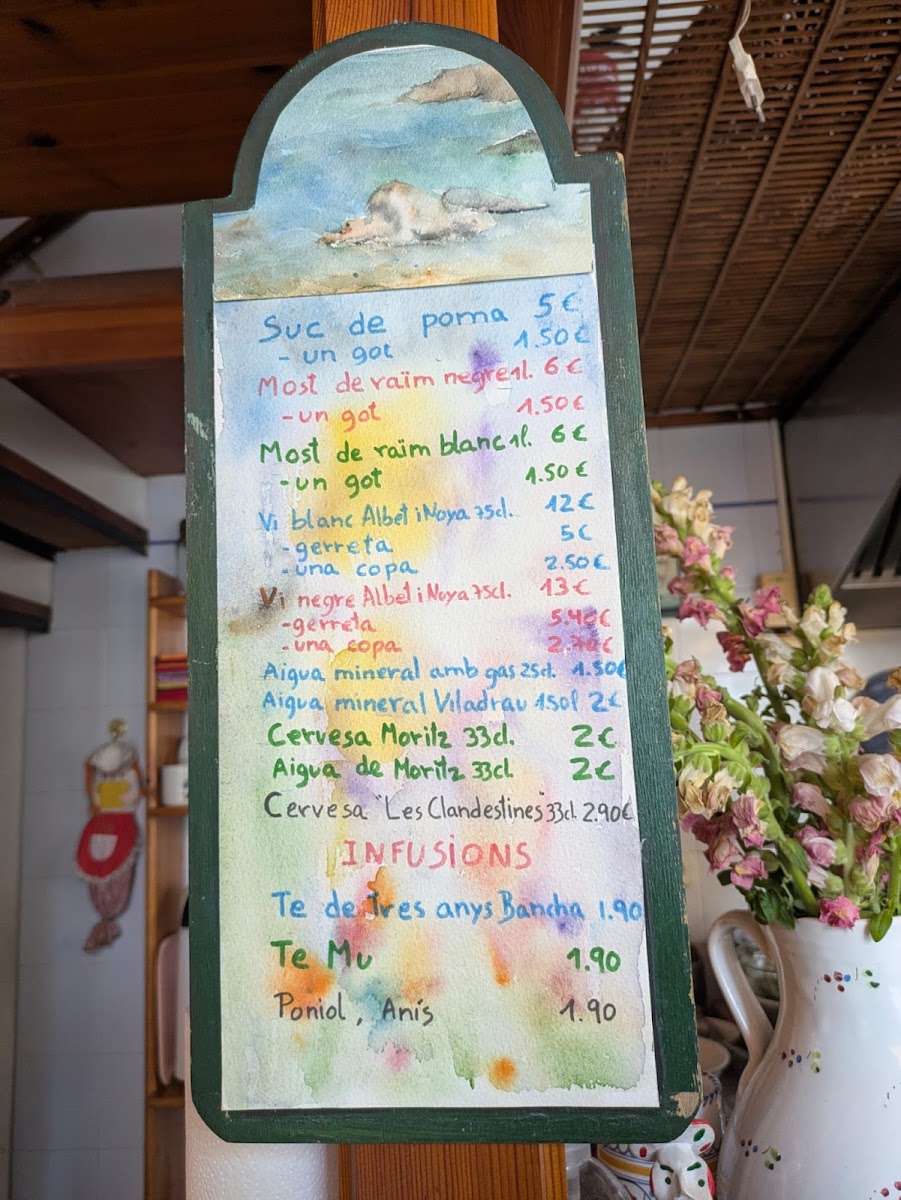 Suc de poma 5€
- un got 1.50€
Most de raïm negre 1l. 6€
- un got 1.50€
Most de raïm blanc 1l. 6€
- un got 1.50€
Vi blanc Albet i Noya 75cl. 12€
- gerreta 5€
- una copa 2.50€
Vi negre Albet i Noya 75cl. 13€
- gerreta 5.40€
- una copa 2.70€
Aigua mineral amb gas 25cl. 1.50€
Aigua mineral Viladrau 150l 2€
Cervesa Moritz 33cl. 2€
Aigua de Moritz 33cl. 2€
Cervesa "Les Clandestines" 33cl. 2.90€
INFUSIONS
Te de Tres anys Bancha 1.90
Te Mu 1.90
Poniol, Anís 1.90